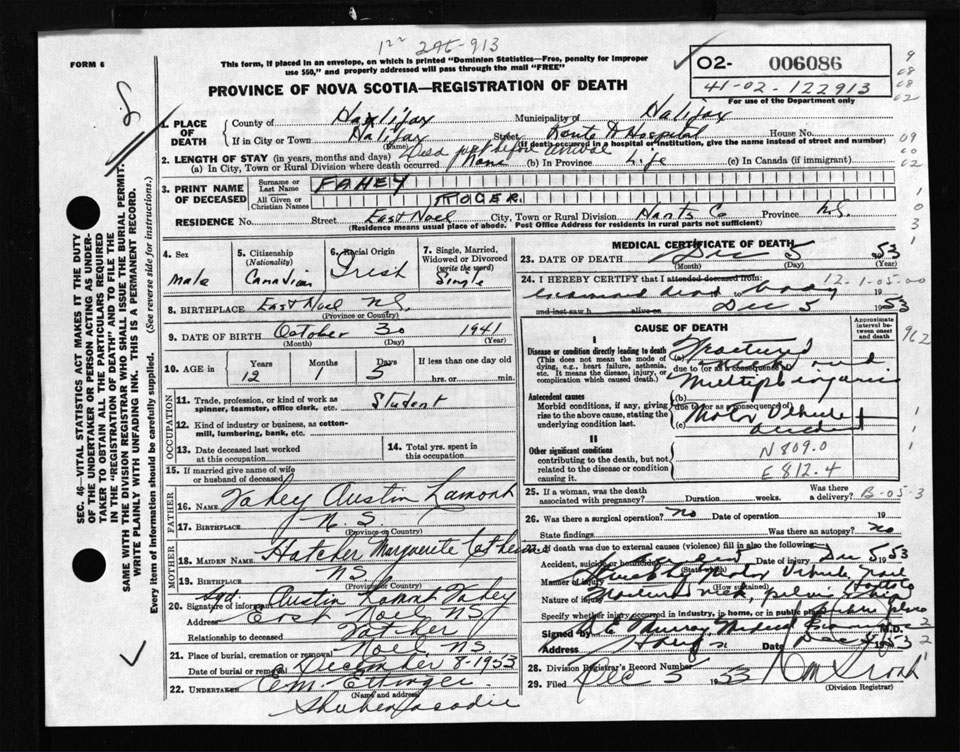 1 22 295-913
FORM 6
This form, if placed in an envelope, on which is printed "Dominion Statistics—Free, penalty for improper
use $50," and properly addressed will pass through the mail "FREE"
O2- 006086
41-02-122913
For use of the Department only
PROVINCE OF NOVA SCOTIA—REGISTRATION OF DEATH
1. PLACE OF DEATH
County of Halifax Municipality of Halifax
If in City or Town Halifax Street Hospital House No.
(Name) (If death occurred in a hospital or institution, give the name instead of street and number)
2. LENGTH OF STAY (in years, months and days) Died just before arrival
(a) In City, Town or Rural Division where death occurred None (b) In Province Life (c) In Canada (if immigrant)
3. PRINT NAME OF DECEASED
Surname or Last Name FAHEY
All Given or Christian Names ROGER
RESIDENCE No. Street East Noel City, Town or Rural Division Hants Co Province N.S
(Residence means usual place of abode. Post Office Address for residents in rural parts not sufficient)
SEC. 46—VITAL STATISTICS ACT MAKES IT THE DUTY
OF THE UNDERTAKER OR PERSON ACTING AS UNDER-
TAKER TO OBTAIN ALL THE PARTICULARS REQUIRED
IN THE "REGISTRATION OF DEATH" AND TO FILE THE
SAME WITH THE DIVISION REGISTRAR WHO SHALL ISSUE THE BURIAL PERMIT.
WRITE PLAINLY WITH UNFADING INK. THIS IS A PERMANENT RECORD.
Every item of information should be carefully supplied. (See reverse side for instructions.)
4. Sex Male
5. Citizenship (Nationality) Canadian
6. Racial Origin Irish
7. Single, Married, Widowed or Divorced (write the word) Single
8. BIRTHPLACE East Noel NS
(Province or Country)
9. DATE OF BIRTH October 30 1941
(Month) (Day) (Year)
10. AGE IN Years 12 Months 1 Days 5 If less than one day old
hrs. or min.
OCCUPATION
11. Trade, profession, or kind of work as
spinner, teamster, office clerk, etc. Student
12. Kind of industry or business, as cotton-
mill, lumbering, bank, etc.
13. Date deceased last worked
at this occupation
14. Total yrs. spent in
this occupation
15. If married give name of wife
or husband of deceased
FATHER
16. NAME Fahey Austin Lamont
17. BIRTHPLACE N.S.
(Province or Country)
MOTHER
18. MAIDEN NAME Hatcher Marguerite
19. BIRTHPLACE NS
(Province or Country)
20. Signature of informant Sgd. Austin Lamont Fahey
Address East Noel NS
Relationship to deceased Father
21. Place of burial, cremation or removal Noel, NS.
Date of burial or removal December 8-1953
22. UNDERTAKER Ettinger
(Name and address)
Shubenacadie
MEDICAL CERTIFICATE OF DEATH
23. DATE OF DEATH Dec 5 1953
(Month) (Day) (Year)
12-1-05-00
24. I HEREBY CERTIFY that I attended deceased from:
examined dead body
and last saw h alive on Dec 5 1953
CAUSE OF DEATH
Approximate interval between onset and death
I
Disease or condition directly leading to death
(This does not mean the mode of
dying, e.g., heart failure, asthenia,
etc. It means the disease, injury, or
complication which caused death.)
(a) Fractured
due to (or as a consequence of)
Multiple injuries
Antecedent causes
Morbid conditions, if any, giving
rise to the above cause, stating the
underlying condition last.
due to (or as a consequence of)
(c) Motor Vehicle accident
II
Other significant conditions
contributing to the death, but not
related to the disease or condition
causing it.
N 809.0
E 812.4
25. If a woman, was the death
associated with pregnancy? Duration weeks. Was there
a delivery? B-05-3
26. Was there a surgical operation? no Date of operation 19
State findings Was there an autopsy? no
27. If death was due to external causes (violence) fill in also the following:
Accident, suicide or homicide? Date of injury Dec 5, 53
(State which)
Manner of injury Struck by Motor Vehicle
(How sustained)
Nature of injury
Specify whether injury occurred in industry, in home, or in public place
Signed by Murray Medical Examiner M.D.
Address Date 1953
28. Division Registrar's Record Number
29. Filed Dec 5 1953
(Division Registrar)